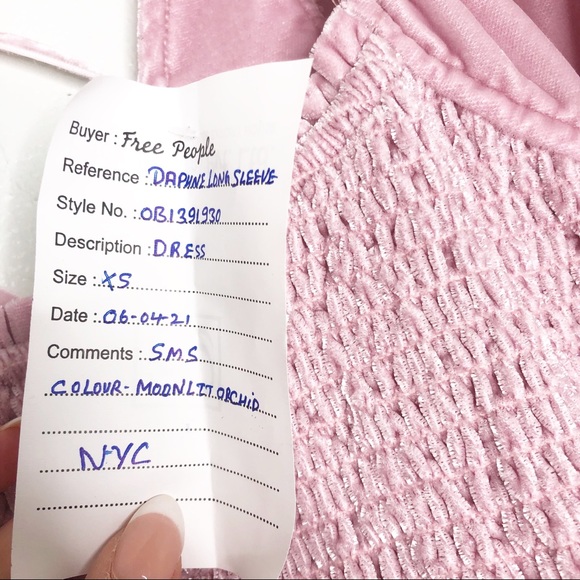 Buyer : Free People
Reference : DAPHNE LONG SLEEVE
Style No. : OB1391930
Description : DRESS
Size : XS
Date : 06-04-21
Comments : S.M.S
COLOUR - MOONLIT ORCHID
NYC